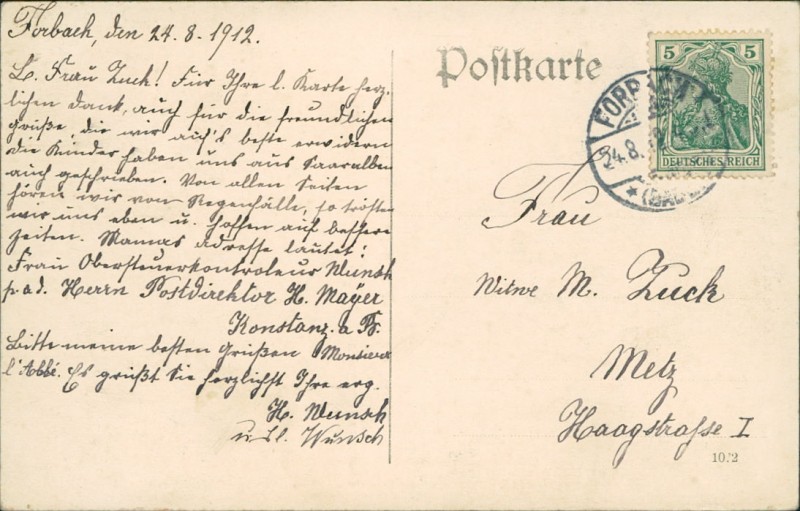 Forbach, den 24.8.1912.
L. Frau Zuck! Für Ihre l. Karte herz-
lichen Dank, auch für die freundlichen
Grüße, die wir auf's beste erwidern
die Kinder haben uns aus Saaralben
auch geschrieben. Von allen Seiten
hören wir von Regenfälle, so trösten
wir uns eben u. hoffen auf bessere
Zeiten. Mamas Adresse lautet:
Frau Obersteuerkontroleur Wunsch
p. ad. Herrn Postdirektor H. Mayer
Konstanz. a B.
Bitte meine besten Grüßen Monsieur
l'Abbé. Es grüßt Sie herzlichst Ihre erg.
H. Wunsch
u. Wunsch
Postkarte
5 5
DEUTSCHES REICH
FORBACH
24.8.
(BAD
Frau
Witwe M. Zuck
Metz
Haagstrasse I
10/2